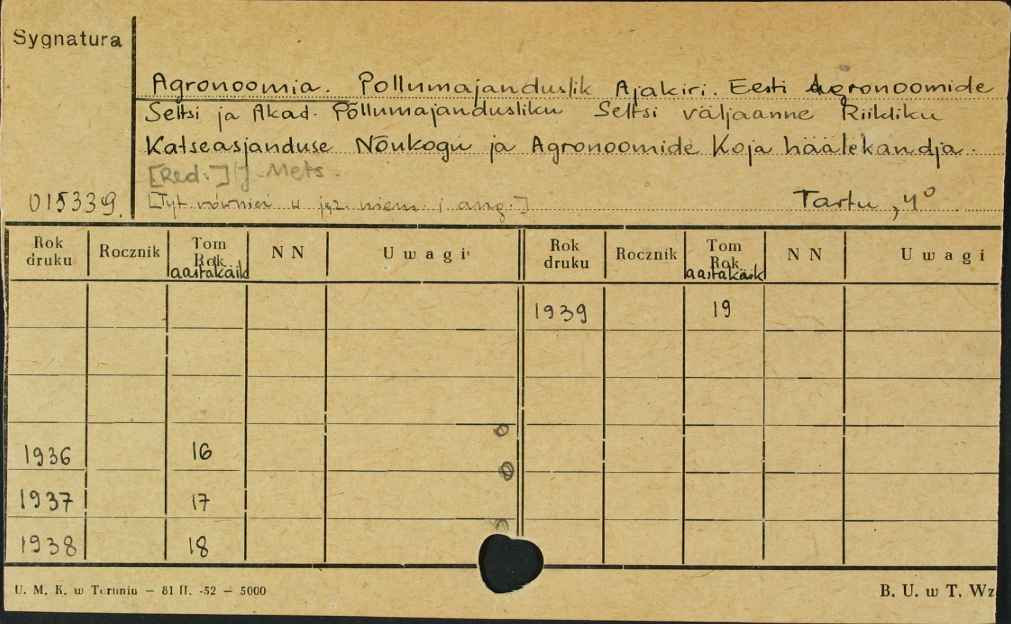 Sygnatura
Agronoomia. Pollumajanduslik Ajakiri. Eesti Agronoomide
Seltsi ja Akad. Põllumajandusliku Seltsi väljaanne Riildiku
Katseasjanduse Nõukogu ja Agronoomide Koja häälekandja.
[Red:] J. Mets.
015339. [Tyt. również w jęz. niem. i ang.] Tartu, 4°
Rok druku Rocznik Tom Rok aastakäik NN Uwagi Rok druku Rocznik Tom Rok aastakäik NN Uwagi
1939 19
1936 16
1937 17
1938 18
U. M. K. w Toruniu — 81 II. -52 — 5000 B. U. w T. Wz